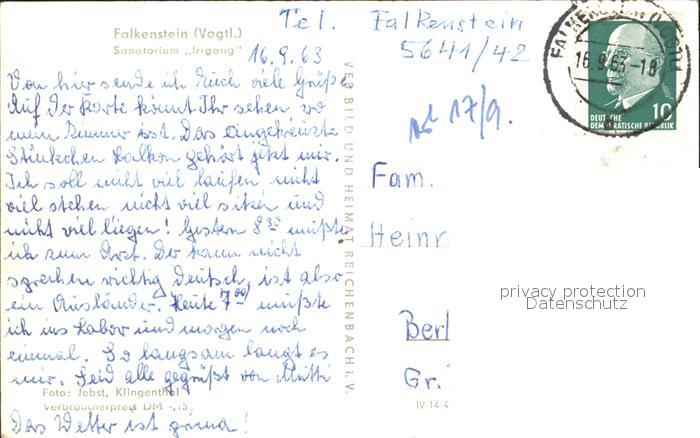 Tel. Falkenstein
5641/42
Falkenstein (Vogtl.)
Sanatorium „Irrgang"
16.9.63
Von hier sende ich Euch viele Grüße
Auf der Karte könnt Ihr sehen wo
mein Zimmer ist. Das angekreuzte
Stückchen Balkon gehört jetzt mir.
Ich soll nicht viel laufen nicht
viel stehen nicht viel sitzen und
nicht viel liegen! Gestern 8³⁰ mußte
ich zum Arzt. Der kann nicht
sprechen richtig deutsch, ist also
ein Ausländer. Heute 7⁰⁰ mußte
ich ins Labor und morgen noch
einmal. So langsam langt es
mir. Seid alle gegrüßt von Mutti
Foto: Jobst, Klingenthal
Verbraucherpreis DM -,15
Das Wetter ist prima!
VEB BILD UND HEIMAT REICHENBACH i. V.
17/9.
Fam.
Heinr
Berl
Gr.
IV-14-4
FALKENSTEIN (VOGTL)
16.9.63-18
DEUTSCHE
DEMOKRATISCHE REPUBLIK
10
privacy protection
Datenschutz